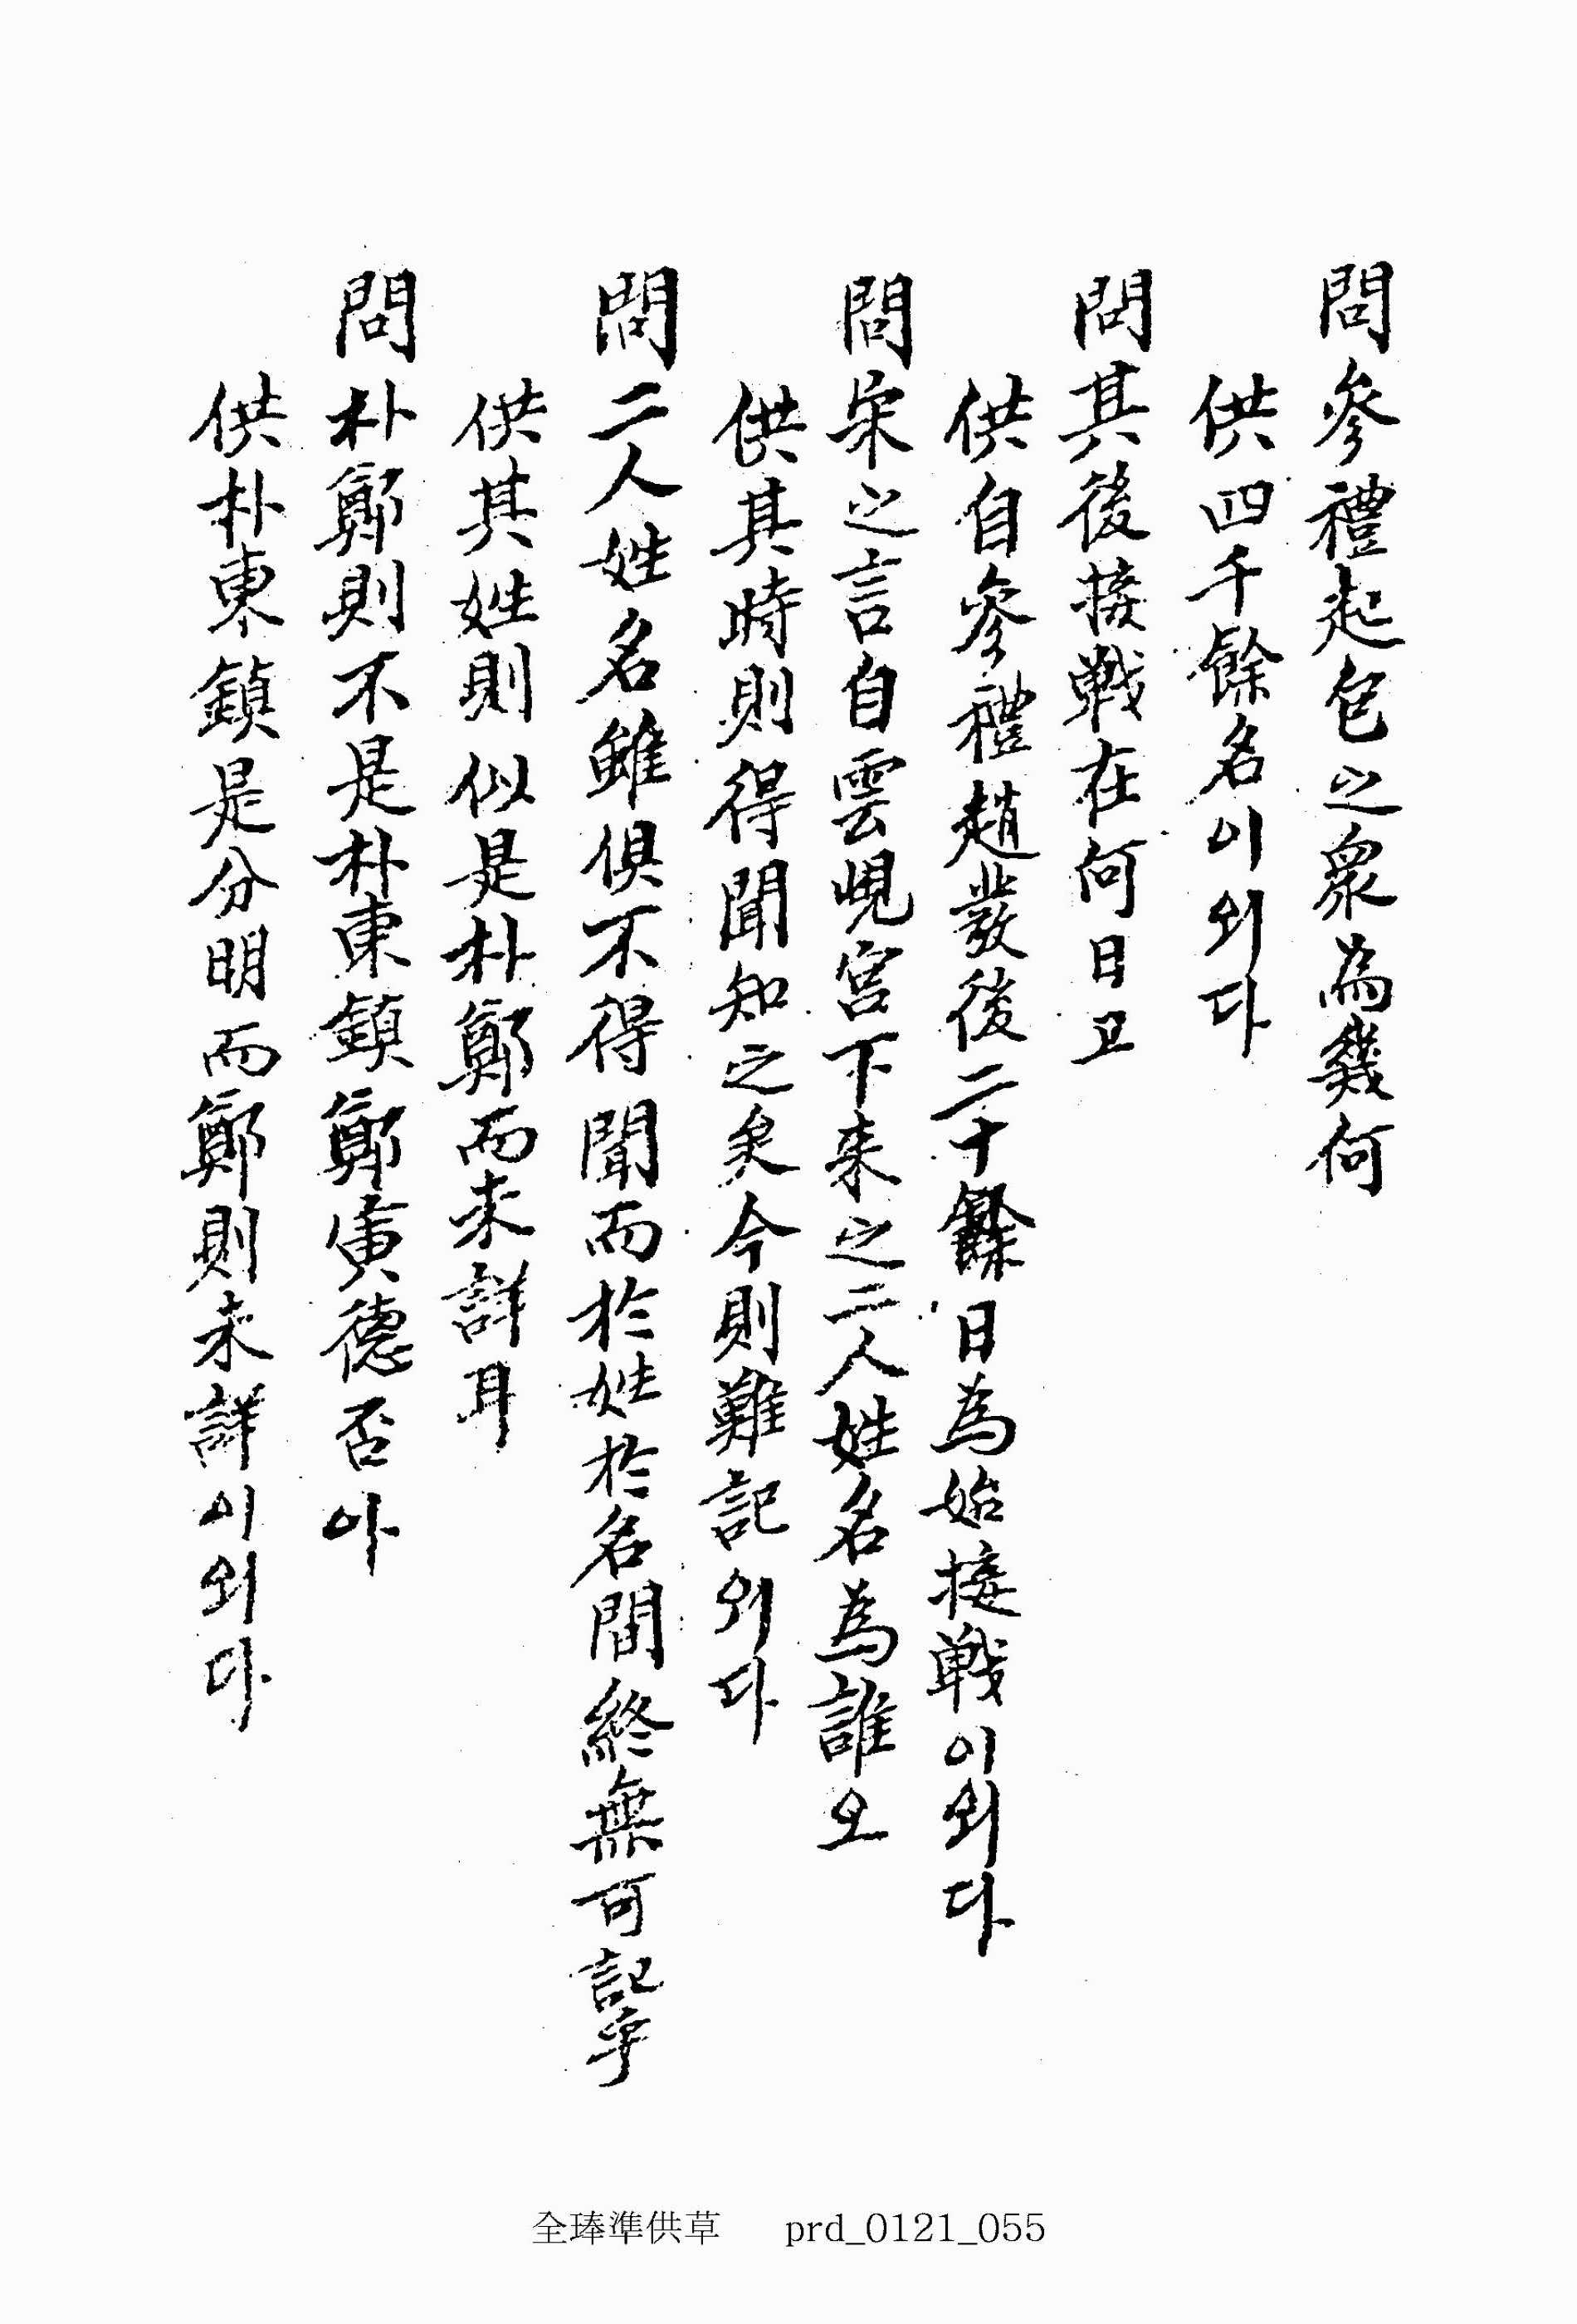 問參禮起包之衆為幾何
供四千餘名이외다
問其後接戰在何日고
供自參禮趙發後二十餘日為始接戰이외다
問宋之言自雲峴宮下来之二人姓名為誰오
供其時則得聞知之矣今則難記외다
問二人姓名雖俱不得聞而於姓於名間終無可記乎
供其姓則似是朴鄭而未詳耳
問朴鄭則不是朴東鎮鄭寅德否아
供朴東鎮是分明而鄭則未詳이외다
全琫準供草 prd_0121_055